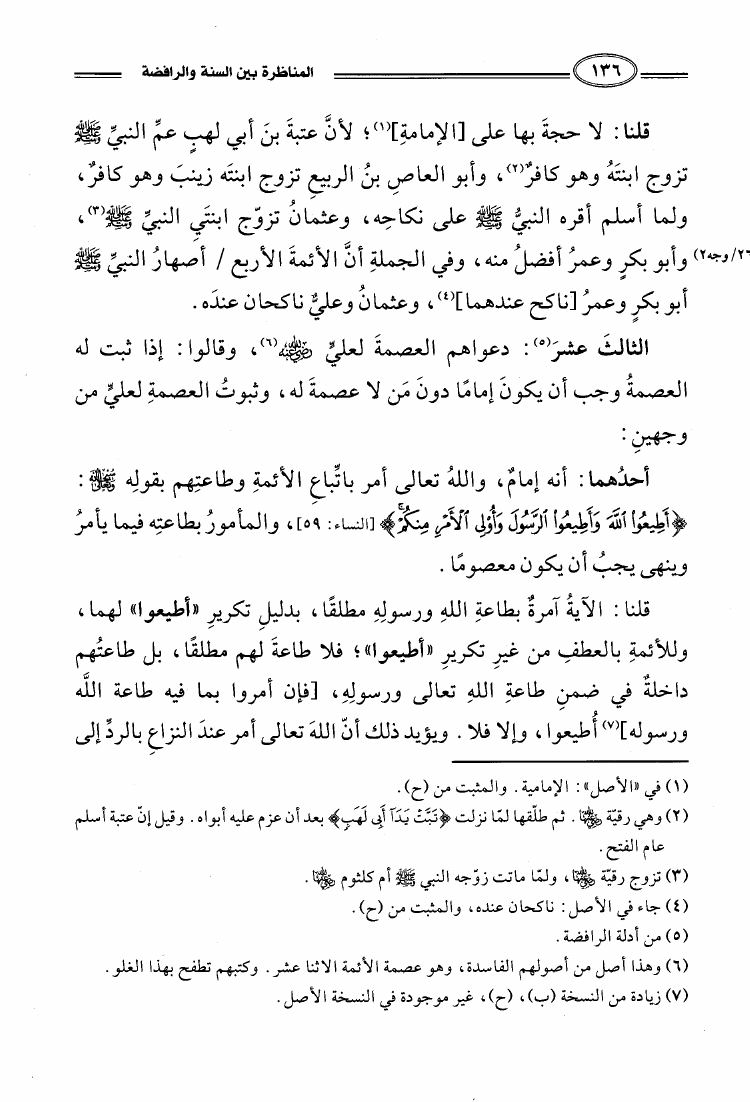 ١٣٦ المناظرة بين السنة والرافضة
قلنا: لا حجةَ بها على [الإمامةِ](١)؛ لأنَّ عتبةَ بنَ أبي لهبٍ عمِّ النبيِّ ﷺ
تزوج ابنتَهُ وهو كافرٌ(٢)، وأبو العاصِ بنُ الربيعِ تزوج ابنتَه زينبَ وهو كافرٌ،
ولما أسلم أقره النبيُّ ﷺ على نكاحِه، وعثمانُ تزوّج ابنتَيِ النبيِّ ﷺ(٣)،
٢٦/وجه٢) وأبو بكرٍ وعمرُ أفضلُ منه، وفي الجملةِ أنَّ الأئمةَ الأربع / أصهارُ النبيِّ ﷺ
أبو بكرٍ وعمرُ [ناكح عندهما](٤)، وعثمانُ وعليٌّ ناكحان عندَه.
الثالثَ عشرَ(٥): دعواهم العصمةَ لعليٍّ رضي الله عنه(٦)، وقالوا: إذا ثبت له
العصمةُ وجب أن يكونَ إمامًا دونَ مَن لا عصمةَ له، وثبوتُ العصمةِ لعليٍّ من
وجهينِ:
أحدُهما: أنه إمامٌ، واللهُ تعالى أمر باتِّباعِ الأئمةِ وطاعتِهم بقولِه :
﴿أَطِيعُوا۟ ٱللَّهَ وَأَطِيعُوا۟ ٱلرَّسُولَ وَأُو۟لِى ٱلْأَمْرِ مِنكُمْ﴾ [النساء: ٥٩]، والمأمورُ بطاعتِه فيما يأمرُ
وينهى يجبُ أن يكون معصومًا.
قلنا: الآيةُ آمرةٌ بطاعةِ اللهِ ورسولِهِ مطلقًا، بدليلِ تكريرِ «أطيعوا» لهما،
وللأئمةِ بالعطفِ من غيرِ تكريرِ «أطيعوا»؛ فلا طاعةَ لهم مطلقًا، بل طاعتُهم
داخلةٌ في ضمنِ طاعةِ اللهِ تعالى ورسولِهِ، [فإن أمروا بما فيه طاعة اللَّه
ورسوله](٧) أُطيعوا، وإلا فلا. ويؤيد ذلك أنّ اللهَ تعالى أمر عندَ النزاعِ بالردِّ إلى
(١) في «الأصل»: الإمامية. والمثبت من (ح).
(٢) وهي رقيّة رضي الله عنها. ثم طلّقها لمّا نزلت ﴿تَبَّتْ يَدَآ أَبِى لَهَبٍ﴾ بعد أن عزم عليه أبواه. وقيل إنّ عتبة أسلم
عام الفتح.
(٣) تزوج رقيّة رضي الله عنها، ولمّا ماتت زوّجه النبي ﷺ أم كلثوم رضي الله عنها.
(٤) جاء في الأصل: ناكحان عنده، والمثبت من (ح).
(٥) من أدلة الرافضة.
(٦) وهذا أصل من أصولهم الفاسدة، وهو عصمة الأئمة الاثنا عشر. وكتبهم تطفح بهذا الغلو.
(٧) زيادة من النسخة (ب)، (ح)، غير موجودة في النسخة الأصل.